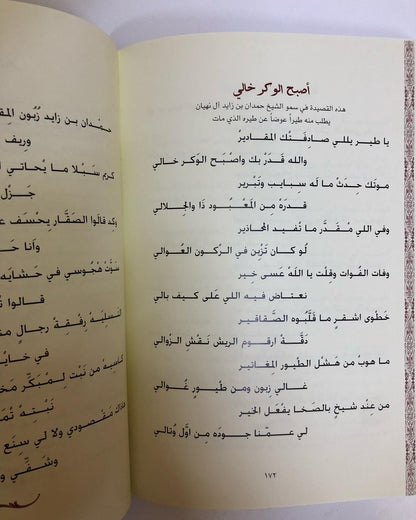 أصبح الوكر خالي
هذه القصيدة في سمو الشيخ حمدان بن زايد آل نهيان
يطلب منه طيراً عوضاً عن طيره الذي مات
يا طير يللي صادفتك المقادير
والله قدر بك واصبح الوكر خالي
موتك حدث ما له سبايب وتبرير
قدره من المعبود ذا والجلالي
وفي اللي مقدر ما تفيد المحاذير
لو كان تزبن في الركون العوالي
وفات الفوات وقلت يا الله عسى خير
نعتاض فيه اللي على كيف بالي
خطوى اشقر ما قلبوه الصقاقير
دقة ارقوم الريش نقش الزوالي
ما هوب من هشل الطيور المغاتير
غالي زبون ومن طيور غوالي
من عند شيخ بالسخا يفعل الخير
لي عمنا جوده من اول وتالي
١٧٢
حمدان بن زايد زبون المق
وريف
كريم سبلا ما يحاتي ا
جزل
وكد قالوا الصقار يحسف ع
وأنا حا
سنوت هجوسي في حشايه
قالوا ت
رفيقة رجال من
في خاي
من نبت لمبكر مخ
نبته تم
مقصودي ولا لي سنع
وشفي و